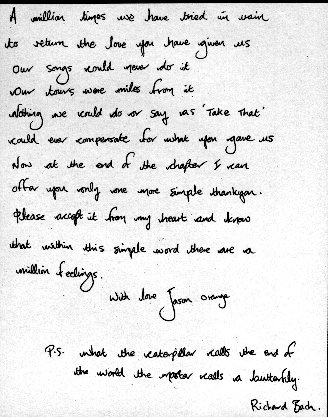 A million times we have tried in vain
to return the love you have given us
Our songs could never do it
Our tours were miles from it
Nothing we could do or say as 'Take That'
could ever compensate for what you gave us
Now at the end of the chapter I can
offer you only one more simple thankyou.
Please accept it from my heart and know
that within this simple word there are a
million feelings.
With love Jason Orange
P.S. What the caterpillar calls the end of
the world the master calls a butterfly.
Richard Bach.